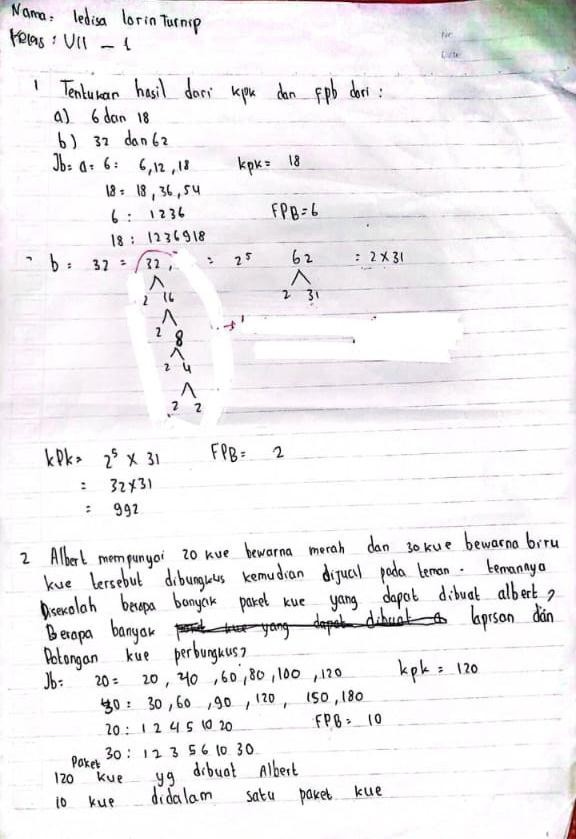 Nama: ledisa lorin Turnip
Kelas : VII - 1
1 Tentukan hasil dari kpk dan fpb dari :
a) 6 dan 18
b) 32 dan 62
Jb= a = 6 : 6, 12, 18 kpk = 18
18 = 18, 36, 54
6 : 1 2 3 6 FPB = 6
18 : 1 2 3 6 9 18
b = 32 = 32, = 2⁵ 62 = 2 x 31
2 16 2 31
2 8
2 4
2 2
kPk = 2⁵ x 31 FPB = 2
= 32 x 31
= 992
2 Albert mempunyai 20 kue bewarna merah dan 30 kue bewarna biru
kue tersebut dibungkus kemudian dijual pada teman - temannya
Disekolah berapa banyak paket kue yang dapat dibuat albert ?
Berapa banyak laprsan dan
Potongan kue perbungkus?
Jb= 20 = 20, 40, 60, 80, 100, 120 kpk = 120
30 = 30, 60, 90, 120, 150, 180
20 : 1 2 4 5 10 20 FPB = 10
30 : 1 2 3 5 6 10 30
Paket
120 kue yg dibuat Albert
10 kue didalam satu paket kue